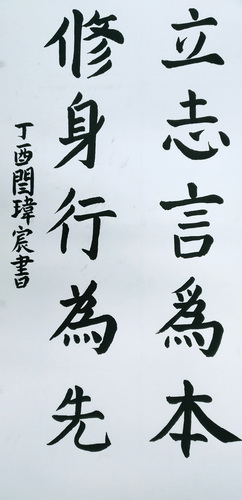 立志言爲本
修身行為先
丁酉閆瑋宸書